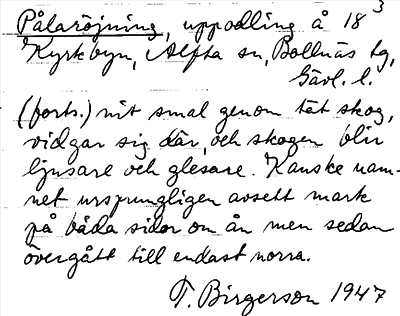 Pålaröjning, uppodling å 18³
Kyrkbyn, Alfta sn, Bollnäs tg,
Gävl. l.
(forts.) nit smal genom tät skog,
vidgar sig där, och skogen blir
ljusare och glesare. Kanske nam-
net ursprungligen avsett mark
på båda sidor om ån men sedan
övergått till endast norra.
T. Birgerson 1947